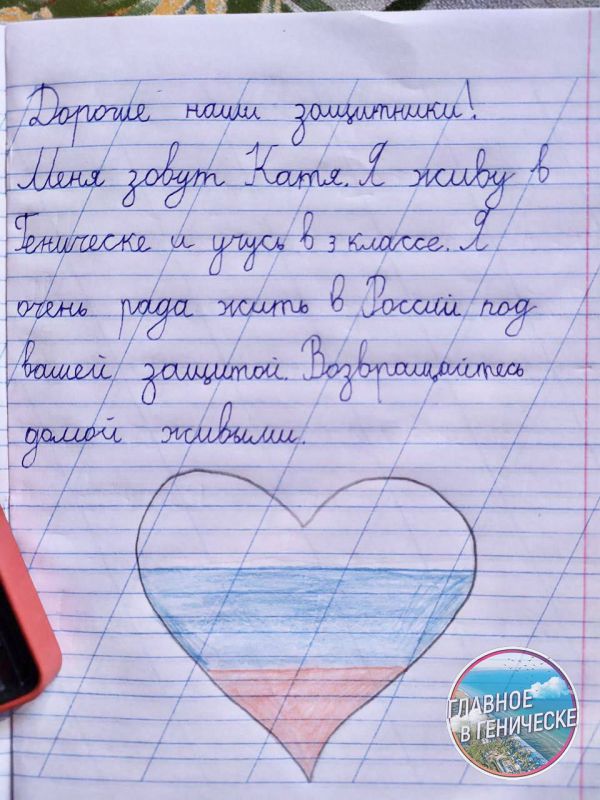 Дорогие наши защитники!
Меня зовут Катя. Я живу в
Геническе и учусь в 3 классе. Я
очень рада жить в Россий под
вашей защитой. Возвращайтесь
домой живыми.
ГЛАВНОЕ
В ГЕНИЧЕСКЕ